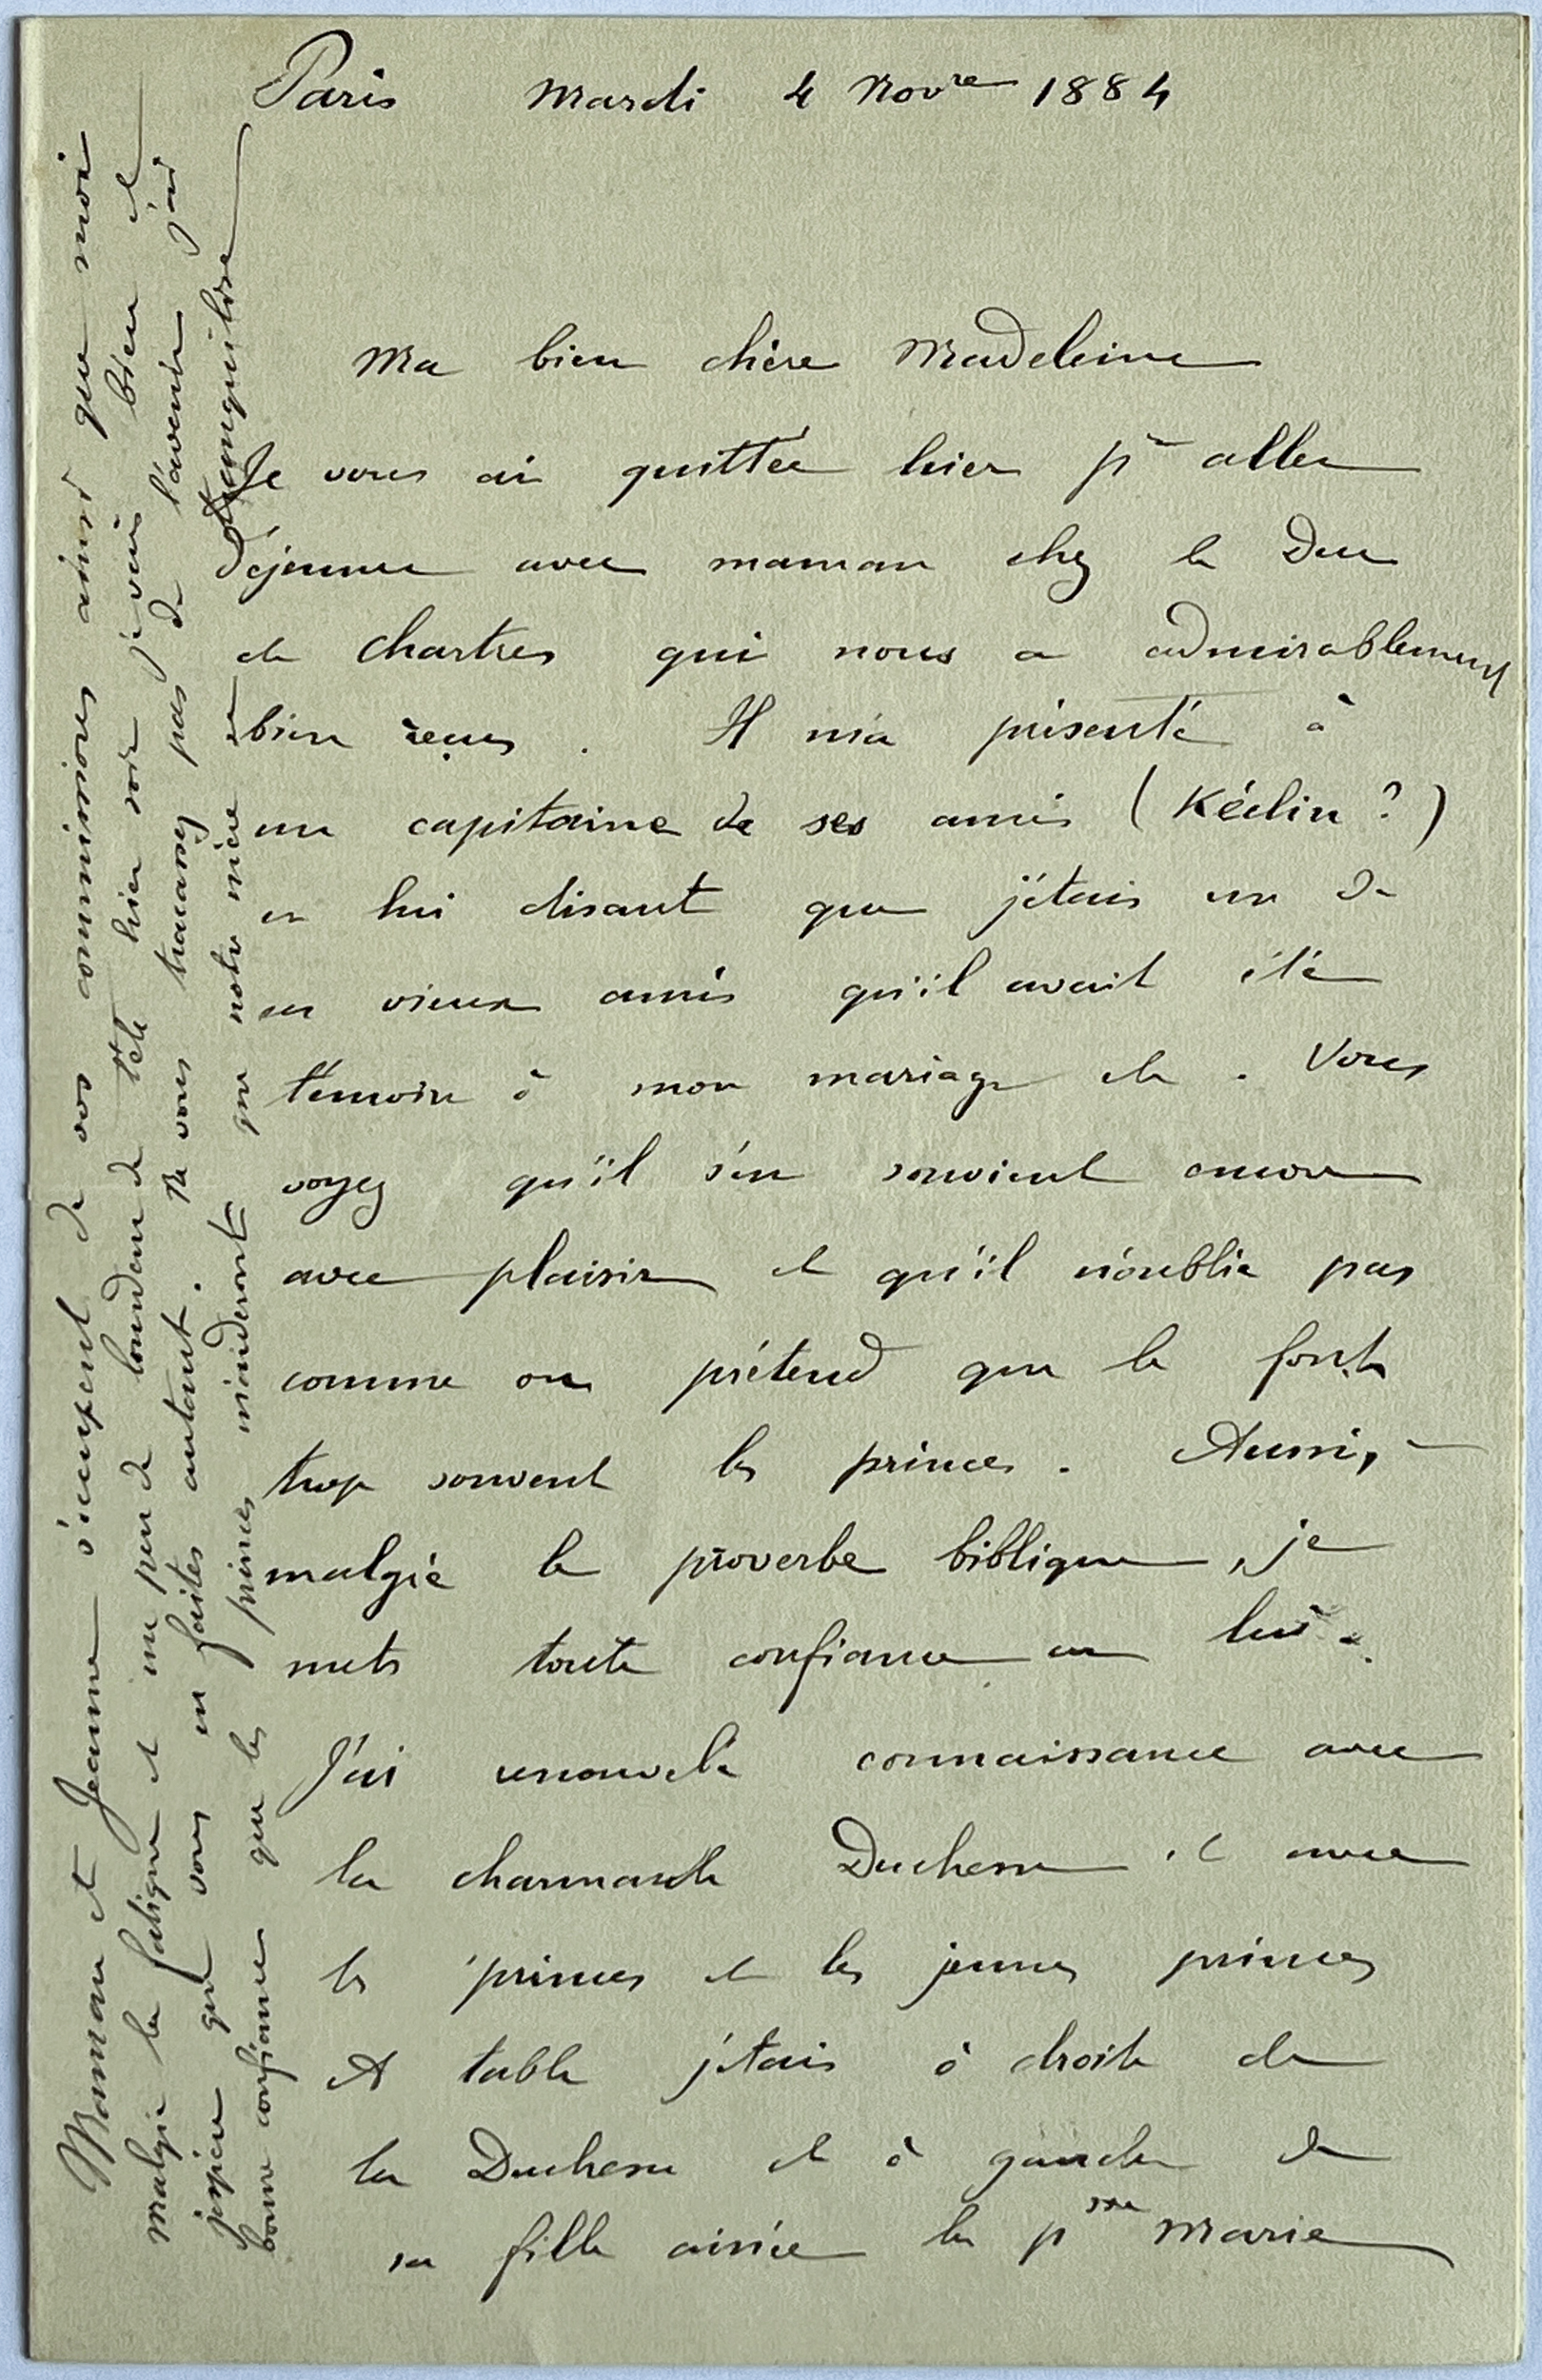 Paris mardi 4 Nov^re 1884
Ma bien chère Madeleine
Je vous ai quittée hier p^r aller
déjeuner avec maman chez le Duc
de Chartres qui nous a admirablement
bien reçus. Il m'a présenté à
un capitaine de ses amis (Kéclin?)
en lui disant que j'étais un de
ses vieux amis qu'il avait été
témoin à mon mariage etc. Vous
voyez qu'il s'en souvient encore
avec plaisir et qu'il n'oublie pas
comme on prétend que le font
trop souvent les princes. Aussi,
malgré le proverbe biblique, je
mets toute confiance en lui.
J'ai renouvelé connaissance avec
la charmante Duchesse et avec
les princes et les jeunes princes
A table j'étais à droite de
la Duchesse et à gauche de
sa fille ainée la p^sse Marie
Maman et Jeanne s'occupent de vos commissions ainsi que moi
malgré la fatigue et un peu de lourdeur de tête hier soir je vais bien et
j'espère que vous en faites autant. Ne vous tracassez pas de l'avenir j'ai
bonne confiance que les princes m'aideront que notre mère se
tranquilise